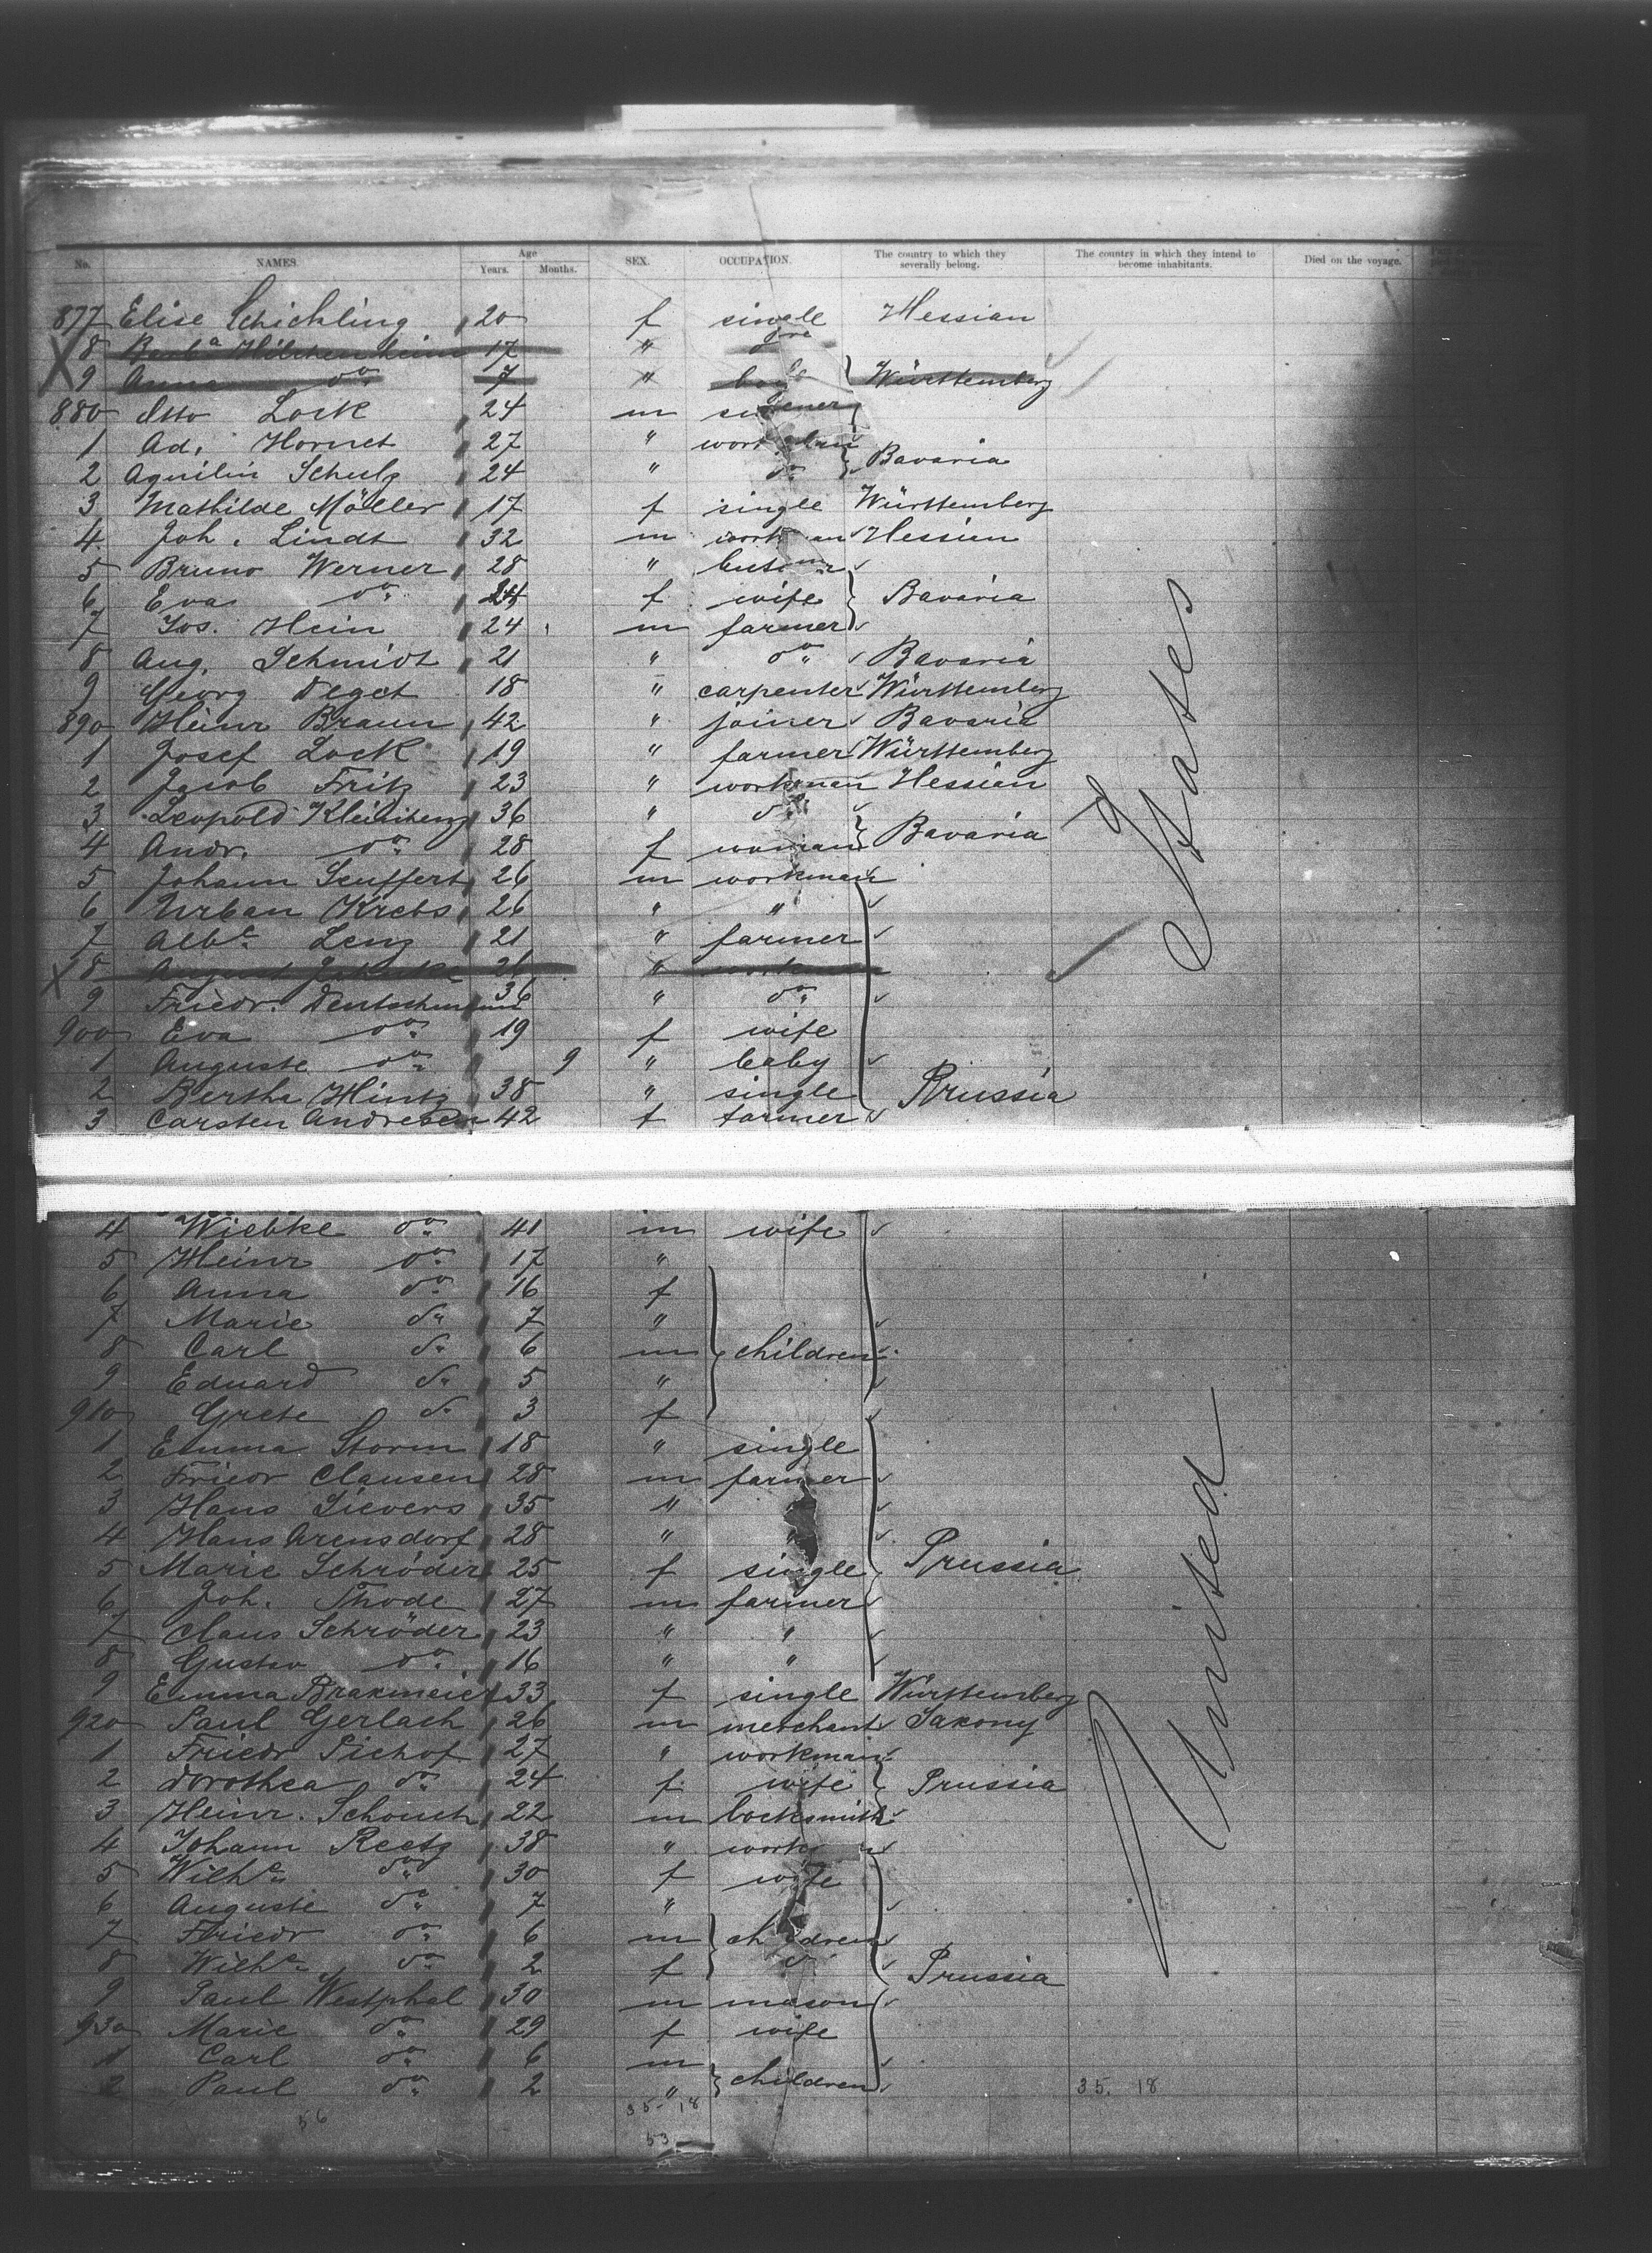 No. NAMES. Age Years. Months. SEX. OCCUPATION. The country to which they severally belong. The country in which they intend to become inhabitants. Died on the voyage.
877 Elise Schickling 20 f single Hessian
8 17 "
9 Anna do 7 " Württemberg
880 Otto Lock 24 m
1 Ad. Hornet 27 "
2 Aquilin Schulz 24 " do Bavaria
3 Mathilde Möller 17 f single Württemberg
4 Joh. Lindt 32 m workman Hessian
5 Bruno Werner 28 "
6 Eva do 24 f wife Bavaria
7 Jos. Hein 24 m farmer
8 Aug. Schmidt 21 " do Bavaria
9 Georg Deget 18 " carpenter Württemberg
890 Heinr Braun 42 " joiner Bavaria
1 Josef Lock 19 " farmer Württemberg
2 Jacob Fritz 23 " workman Hessian
3 Leopold 36 " do
4 Andr. do 28 f woman Bavaria
5 Johann Seuffert 26 m workman
6 Urban Krebs 26 " "
7 Albt Lenz 21 " farmer
8 August 26 " workman
9 Friedr. Deutschmann 36 " do
900 Eva do 19 f wife
1 Auguste do 9 " baby
2 Bertha Hintz 38 " single Prussia
3 Carsten Andresen 42 f farmer
4 Wiebke do 41 m wife
5 Heinr do 17 "
6 Anna do 16 f
7 Marie do 7 "
8 Carl do 6 m children
9 Eduard do 5 "
910 Grete do 3 f
1 Emma Storm 18 " single
2 Friedr Clausen 28 m farmer
3 Hans Sievers 35 "
4 Hans Arensdorf 28 "
5 Marie Schröder 25 f single Prussia
6 Joh. Thode 27 m farmer
7 Claus Schröder 23 " "
8 Gustav do 16 " "
9 Emma Brakmeier 33 f single Württemberg
920 Paul Gerlach 26 m merchant Saxony
1 Friedr Pichof 27 " workman
2 Dorothea do 24 f wife Prussia
3 Heinr. 22 m locksmith
4 Johann Reetz 38 "
5 Wilhe do 30 f wife
6 Auguste do 7 "
7 Friedr do 6 m children
8 Wilhe do 2 f Prussia
9 Paul Westphal 30 m mason
930 Marie do 29 f wife
1 Carl do 6 m
2 Paul do 2 " children
35. 18
56 35-18
53
United States